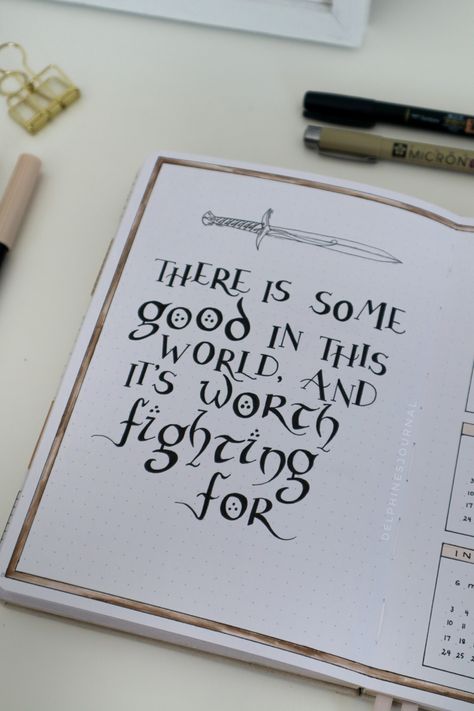 THERE IS SOME
good IN THIS
WORLD, AND
IT'S worth
fighting
for
DELPHINESJOURNAL
MICRON
IN
3 4
10 11
17 18
24 25